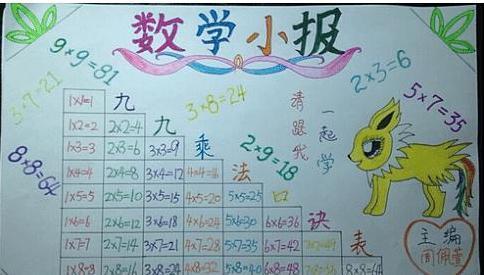 数学小报
9×9=81
3×7=21
8×8=64
3×8=24
2×9=18
2×3=6
5×7=35
请跟我
一起学
九九乘法口诀表
1×1=1
1×2=2 2×2=4
1×3=3 2×3=6 3×3=9
1×4=4 2×4=8 3×4=12 4×4=16
1×5=5 2×5=10 3×5=15 4×5=20 5×5=25
1×6=6 2×6=12 3×6=18 4×6=24 5×6=30 6×6=36
1×7=7 2×7=14 3×7=21 4×7=28 5×7=35 6×7=42 7×7=49
1×8=8 2×8=16 3×8=24 4×8=32 5×8=40 6×8=48 7×8=56 8×8=64
主编